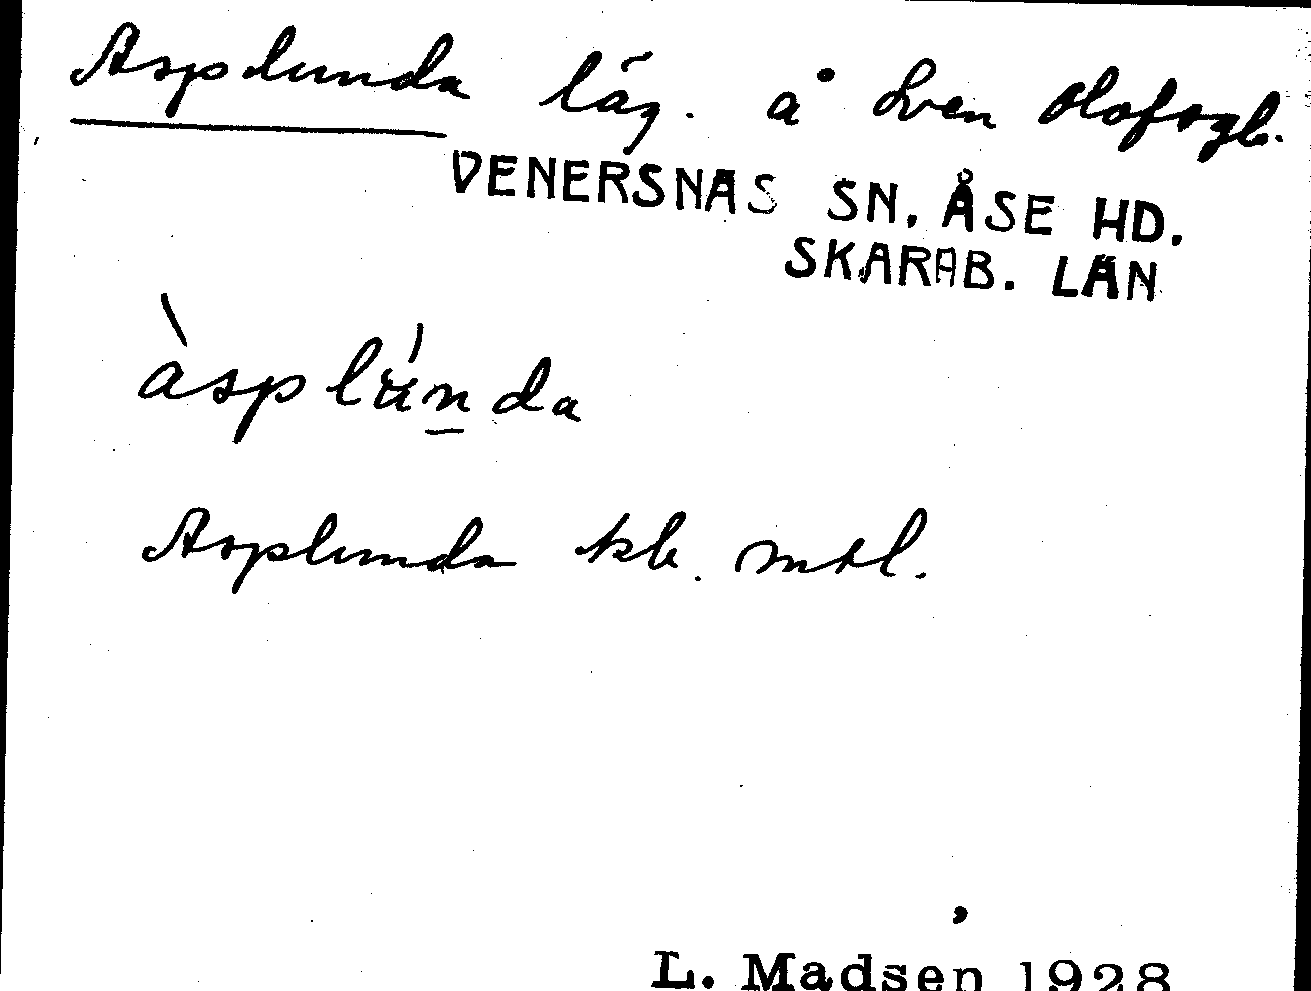 Asplunda läg. å Sven Olofsgb.
VENERSNÄS SN. ÅSE HD.
SKARAB. LÄN
àsplúnda
Asplunda kb. mtl.
L. Madsen 1928